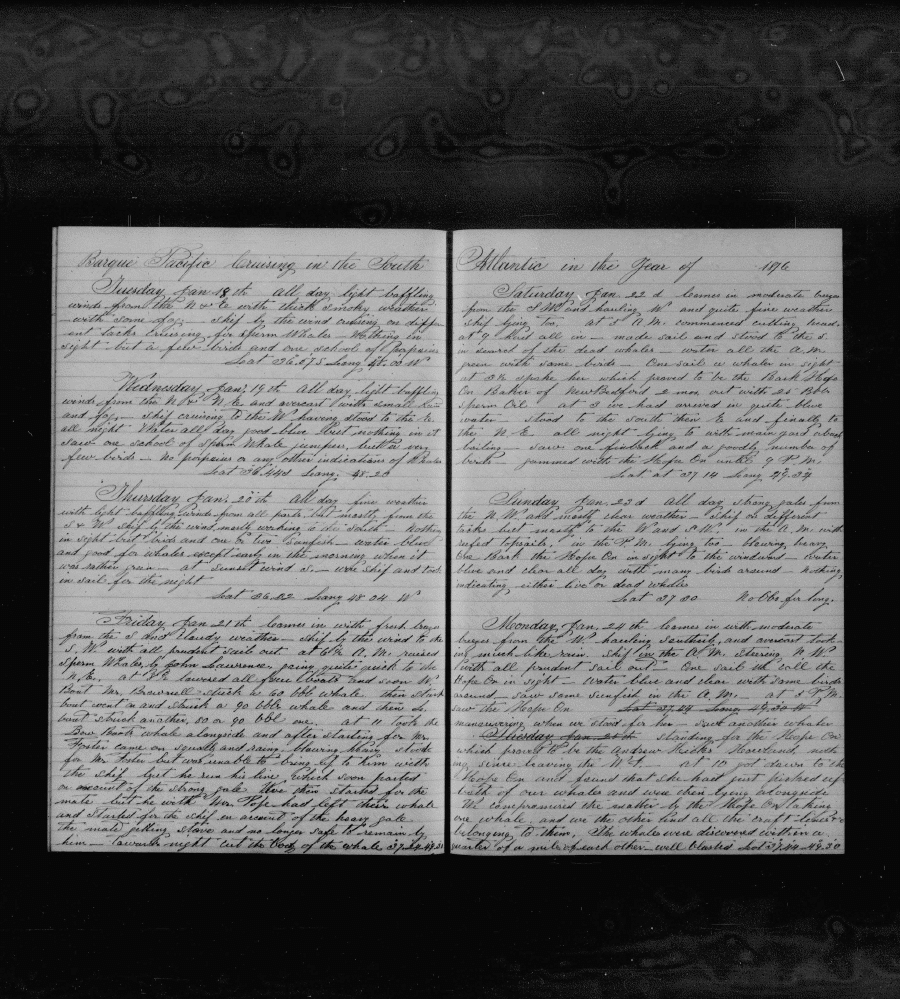 Barque Pacific Cruising in the South
Tuesday Jan 18th All day light baffling
winds from the N & E with thick smoky weather
with some fog ship by the wind cruising on differ
ent tacks cruising for Sperm Whales Nothing in
sight but a few birds and one school of Porpoises
Lat 36.27 S Long 48.00 W
Wednesday Jan 19th All day light baffling
winds from the N & N E and overcast with
and fog ship cruising to the W having stood to the E
all night Water all day good blue but nothing in it
saw one school of Sperm Whale jumpers but a very
few birds no porpoises or any other indications of Whales
Lat 36.44 Long 48.20
Thursday Jan 20th All day fine weather
with light baffling winds from all parts but mostly from the
S & W ship by the wind mostly working to the South Nothing
in sight but birds and one or two sunfish water blue
and good for whales except early in the morning when it
was rather green at sunset wind S. wore ship and took
in sail for the night
Lat 36.22 Long 48 04 W
Friday Jan 21st Comes in with fresh breeze
from the S and cloudy weather ship by the wind to the
S W with all prudent sail out at 6½ A.M. raised
Sperm Whales by John Lawrence going quite quick to the
N.E. at lowered all four boats and soon W
Boat Mr. Brownell struck a 60 bbl whale then
boat went on and struck a 90 bbl whale and then
boat struck another, 80 or 90 bbl one at 11 took the
Bow Boats whale alongside and after starting for Mr.
Foster came on squally and rainy blowing heavy stood
for Mr. Foster but was unable to bring up to him with
the ship got he run his line which soon parted
on account of the strong gale We then started for the
mate but he with Mr. Pope had left their whale
and started for the ship on account of the heavy gale
the mate getting stove and no longer safe to remain by
him towards night cut the body of the whale
Atlantic in the Year of 1876
Saturday Jan. 22 d Comes in moderate breeze
from the S W and hauling W and quite fine weather
ship lying too at 5 A.M. commenced cutting head
at 9 hoist all in made sail and stood to the S
in search of the dead whales water all the A.M.
green with some birds One sail a whaler in sight
at 3½ spoke her which proved to be the Bark Hope
On Baker of New Bedford 2 mos out with 25 Bbls
Sperm Oil at 3 we had arrived in quite blue
water stood to the south then E and finally to
the N E all night lying to with main yard aback
boiling saw one finback and a goodly number of
birds gammed with the Hope On until 9 P.M.
Lat at 37 14 Long 49.34
Sunday Jan 23 d All day strong gales from
the N. W. and mostly clear weather Ship on different
tacks but mostly to the W and S W in the A.M. with
reefed topsails, in the P.M. lying too blowing heavy
the Bark the Hope On in sight to the windward water
blue and clear all day with many birds around nothing
indicating either live or dead whales
Lat 37 30 No Obs for Long.
Monday Jan. 24th Comes in with moderate
breezes from the W. hauling southerly and overcast look-
ing much like rain. Ship in the A.M. steering N. W.
with all prudent sail out One sail the call the
Hope On in sight water blue and clear with some birds
around saw some sunfish in the A.M. at 5 P.M.
saw the Hope On Lat 37.24 Long 49.30 W
maneuvering when we stood for her saw another whaler
Tuesday Jan 25th standing for the Hope On
which proved to be the Andrew Hicks Howland noth
ing since leaving the W. I. at 10 got down to the
Hope On and found that she had just picked up
both of our whales and were then lying alongside
We compromised the matter by the Hope On taking
one whale, and we the other and all the craft lines &c
belonging to them, The whales were discovered within a
quarter of a mile of each other well blasted Lat 37.44 49.30